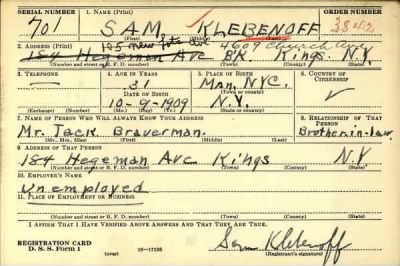 SERIAL NUMBER 1. NAME (Print) ORDER NUMBER
701 SAM KLEBENOFF
(First) (Middle) (Last)
2. ADDRESS (Print) 105 New Lots Ave 4609 Church Ave
184 Hegeman Ave BK. Kings N.Y.
(Number and street or R. F. D. number) (Town) (County) (State)
3. TELEPHONE 4. AGE IN YEARS 5. PLACE OF BIRTH 6. COUNTRY OF CITIZENSHIP
31 Man. NYC.
DATE OF BIRTH (Town or county)
10-9-1909 N.Y.
(Exchange) (Number) (Mo.) (Day) (Yr.) (State or country)
7. NAME OF PERSON WHO WILL ALWAYS KNOW YOUR ADDRESS 8. RELATIONSHIP OF THAT PERSON
Mr. Jack Braverman. Brother-in-law
(Mr., Mrs., Miss) (First) (Middle) (Last)
9. ADDRESS OF THAT PERSON
184 Hegeman Ave Kings N.Y.
(Number and street or R. F. D. number) (Town) (County) (State)
10. EMPLOYER'S NAME
Unemployed
11. PLACE OF EMPLOYMENT OR BUSINESS
(Number and street or R. F. D. number) (Town) (County) (State)
I AFFIRM THAT I HAVE VERIFIED ABOVE ANSWERS AND THAT THEY ARE TRUE.
REGISTRATION CARD
D. S. S. Form 1 16—17105 Sam Klebenoff
(Registrant's signature)